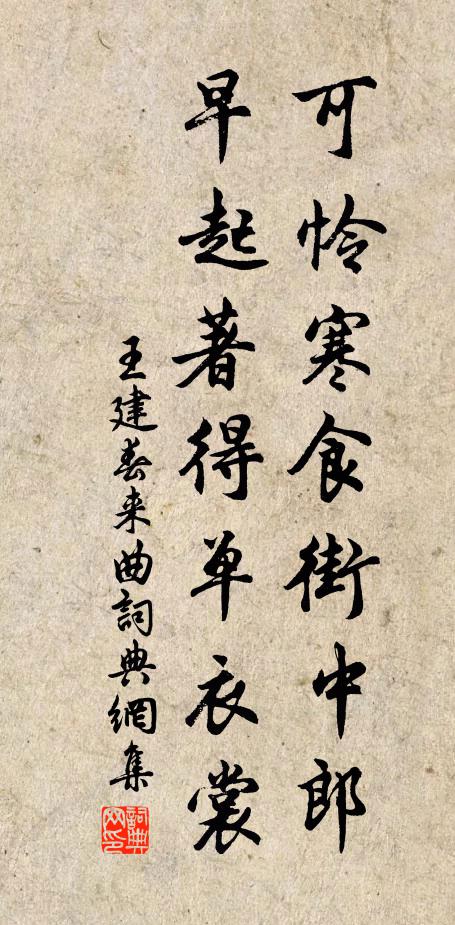 可怜寒食街中郎
早起著得单衣裳
王建春来曲詞典網集
詞典网印